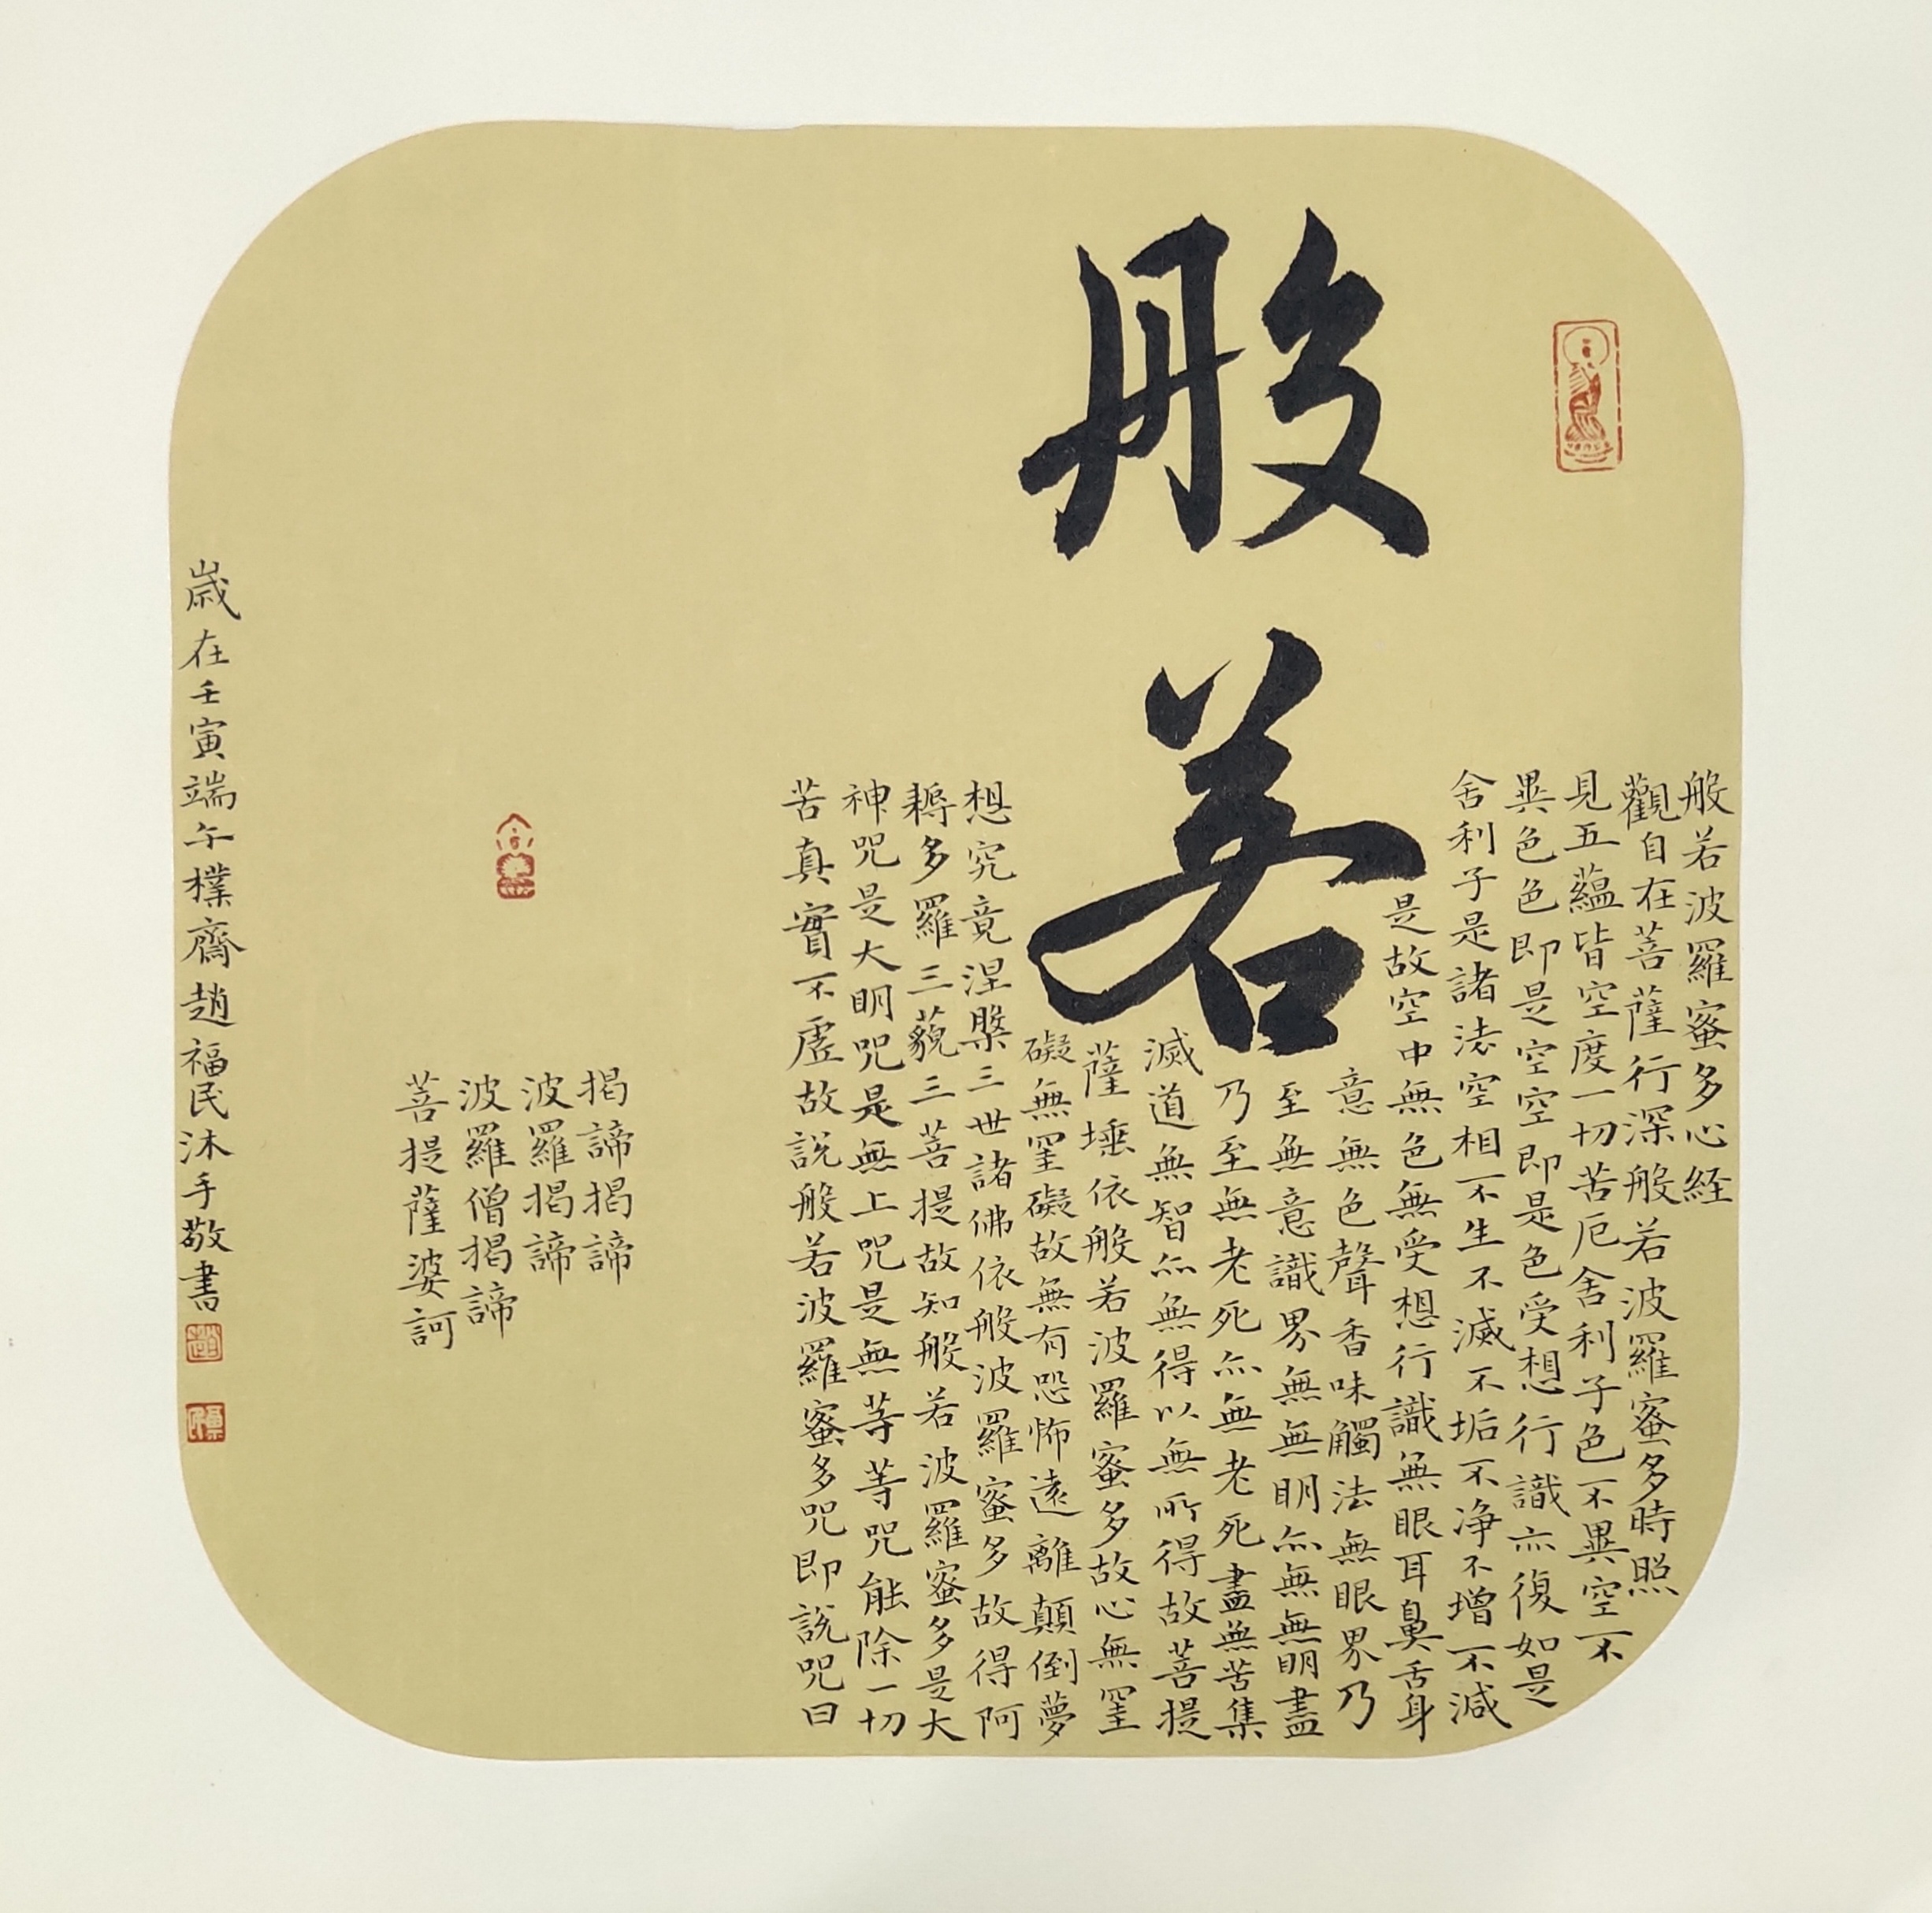 般若
般若波羅蜜多心経
觀自在菩薩行深般若波羅蜜多時照
見五蘊皆空度一切苦厄舍利子色不異空不
異色色即是空空即是色受想行識亦復如是
舍利子是諸法空相不生不滅不垢不净不增不減
是故空中無色無受想行識無眼耳鼻舌身
意無色聲香味觸法無眼界乃
至無意識界無無明亦無無明盡
乃至無老死亦無老死盡無苦集
滅道無智亦無得以無所得故菩提
薩埵依般若波羅蜜多故心無罣
礙無罣礙故無有恐怖遠離顛倒夢
想究竟涅槃三世諸佛依般波羅蜜多故得阿
耨多羅三藐三菩提故知般若波羅蜜多是大
神咒是大明咒是無上咒是無等等咒能除一切
苦真實不虛故說般若波羅蜜多咒即說咒曰
揭諦揭諦
波羅揭諦
波羅僧揭諦
菩提薩婆訶
歲在壬寅端午樸齋趙福民沐手敬書